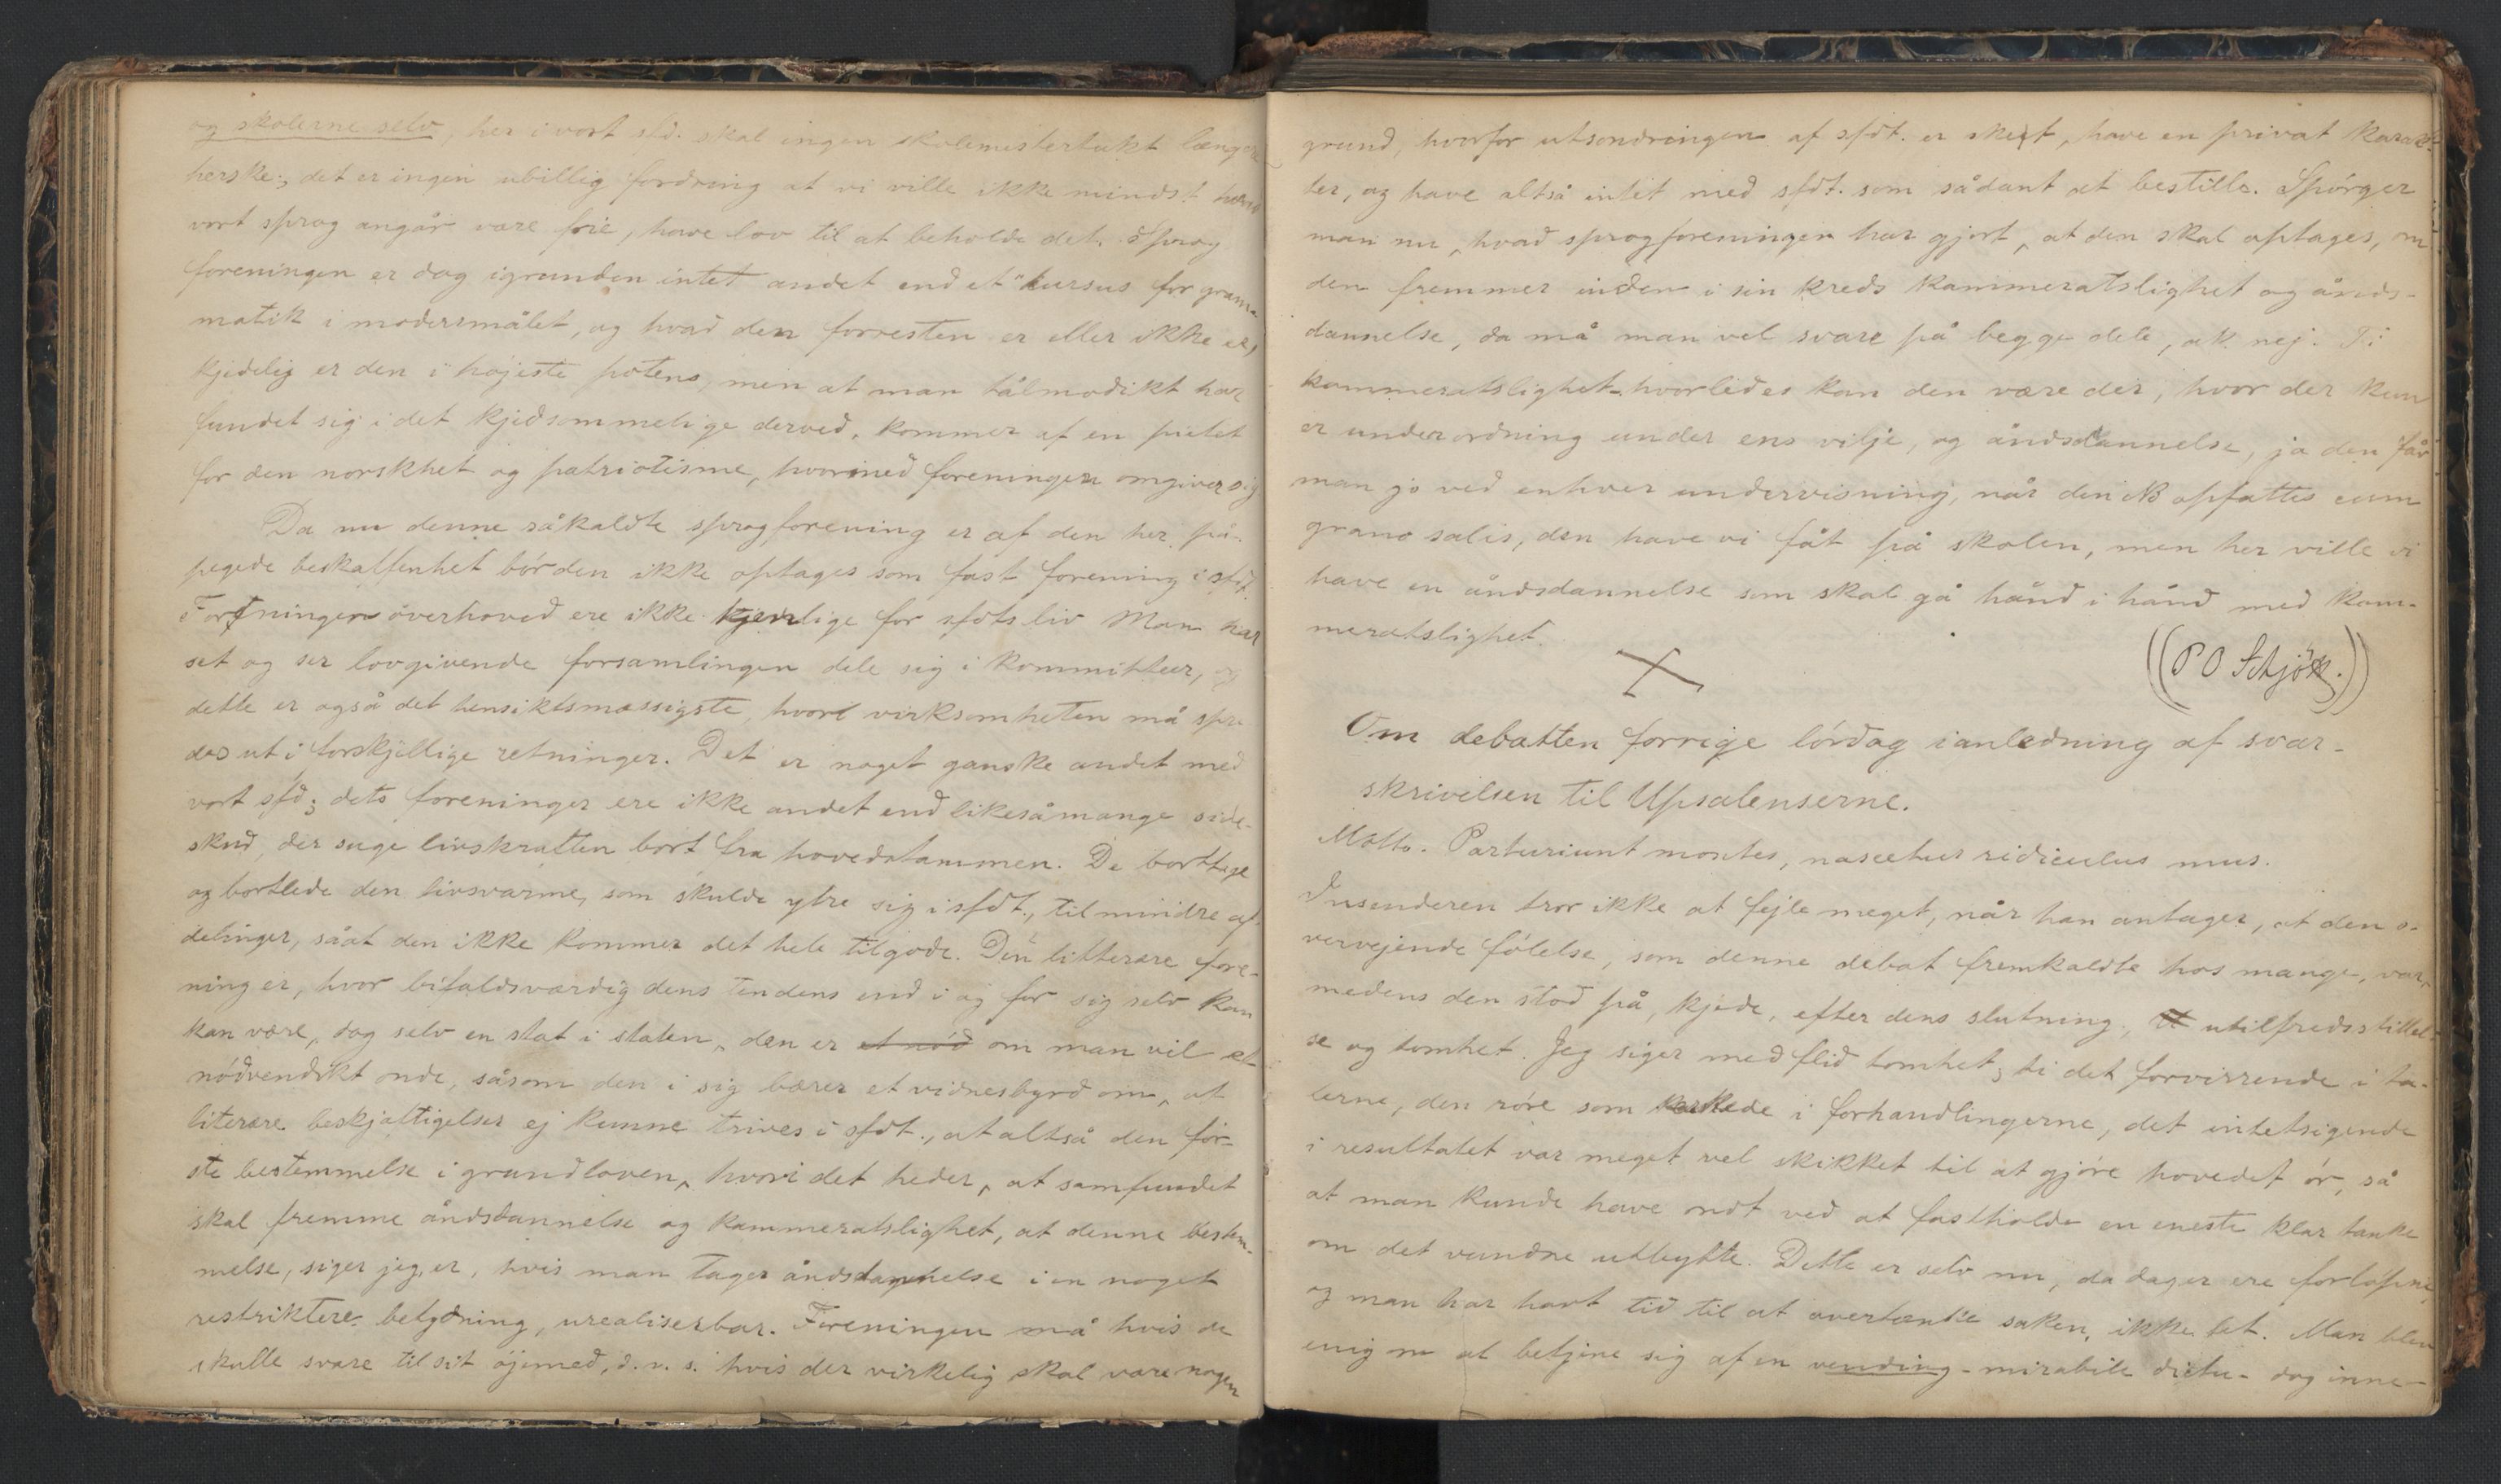 og skolerne selv, her i vort sfd. skal ingen skolemestertukt længer
herske; det er ingen ubillig fordring at vi ville ikke mindst hvad
vort sprog angår være frie, have lov til at beholde det. Sprog
foreningen er dog igrunden intet andet end et kursus for gram
matik i modersmålet, og hvad den forresten er eller ikke er,
kjedelig er den i højeste potens, men at man tålmodikt har
fundet sig i det kjedsommelige derved, kommer af en pietet
for den norskhet og patriotisme, hvormed foreningen omgiver sig
Da nu denne såkaldte sprogforening er af den her på-
pegede beskaffenhet bör den ikke optages som fast forening i sfdt.
Foreninger overhoved ere ikke kjenlige for sfdts liv Man har
set og ser lovgivende forsamlinger dele sig i kommitteer, og
dette er også det hensiktsmæssigste, hvor virksomheten må spre
des ut i forskjellige retninger. Det er noget ganske andet med
vort sfd; dets foreninger ere ikke andet end likesåmange side-
skud, der suge livskraften bort fra hovedstammen. De borttage
og bortlede den livsvarme, som skulde ytre sig i sfdt., til mindre af-
delinger, såat den ikke kommer det hele tilgode. Den litterære fore-
ning er, hvor bifaldsværdig dens tendens end i og for sig selv kan
kan være, dog selv en stat i staten, den er et nöd om man vil et
nödvendikt onde, såsom den i sig bærer et vidnesbyrd om, at
literære beskjæftigelser ej kunne trives i sfdt., at altså den för-
ste bestemmelse i grundloven, hvori det heder, at samfundet
skal fremme åndsdannelse og kammeratslighet, at denne bestem-
melse, siger jeg, er, hvis man tager åndsdannelse i en noget
restriktere betydning, urealiserbar. Foreningen må hvis de
skulle svare til sit öjemed, d. v. s. hvis der virkelig skal være nogen
grund, hvorfor utsondringen af sfdt. er skeet, have en privat karak-
ter, og have altså intet med sfdt. som sådant at bestille. Spörger
man nu, hvad sprogforeningen har gjort, at den skal optages, om
den fremmer inden i sin kreds kammeratslighet og ånds-
dannelse, da må man vel svare på begge dele, ak nej. Ti
kammeratslighet, hvorledes kan den være der, hvor der kun
er underordning under ens vilje, og åndsdannelse, ja den får
man jo ved enhver undervisning, når den NB opfattes cum
grano salis, den have vi fåt på skolen, men her ville vi
have en åndsdannelse som skal gå hånd i hånd med kam-
meratslighet.
((P O Schjött.))
Om debatten forrige lördag i anledning af svar-
skrivelsen til Upsalenserne.
Motto. Parturiunt montes, nascetur ridiculus mus.
Insenderen tror ikke at fejle meget, når han antager, at den o-
vervejende fölelse, som denne debat fremkaldte hos mange, var,
medens den stod på, kjede, efter dens slutning, ut utilfredsstillel-
se og tomhet. Jeg siger med flid tomhet; ti det forvirrende i ta-
lerne, den röre som herskede i forhandlingerne, det intetsigende
i resultatet var meget vel skikket til at gjöre hovedet ör, så
at man kunde have ondt ved at fastholde en eneste klar tanke
om det vundne utbytte. Dette er selv nu, da dager ere forlöpne
og man har havt tid til at overtænke saken, ikke let. Man blev
enig m at betjene sig af en vending - mirabile dictu - dog inne-